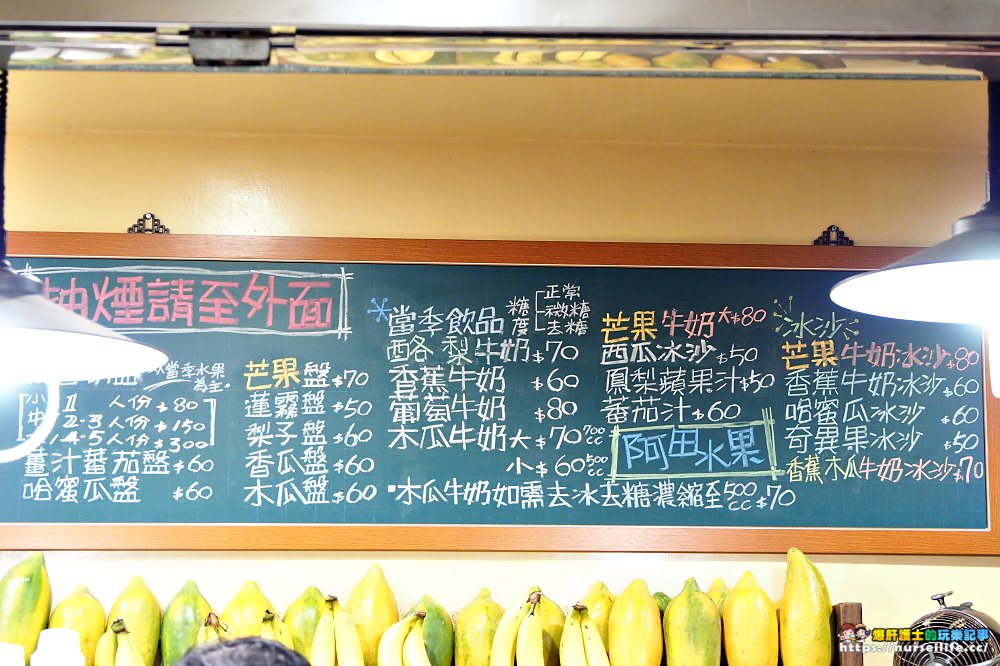 抽煙請至外面
以當季水果為主.
小 1 人份 $80
中 2-3 人份 $150
4-5 人份 $300
薑汁蕃茄盤 $60
哈蜜瓜盤 $60
芒果盤 $70
蓮霧盤 $50
梨子盤 $60
香瓜盤 $60
木瓜盤 $60
當季飲品 糖度 正常 微糖 去糖
酪梨牛奶 $70
香蕉牛奶 $60
葡萄牛奶 $80
木瓜牛奶 大 $70 700cc
小 $60 500cc
木瓜牛奶如需去冰去糖濃縮至500cc $70
芒果牛奶 大 $80
西瓜冰沙 $50
鳳梨蘋果汁 $50
蕃茄汁 $60
阿田水果
冰沙
芒果牛奶冰沙 $80
香蕉牛奶冰沙 $60
哈蜜瓜冰沙 $60
奇異果冰沙 $50
香蕉木瓜牛奶冰沙 $70
爆肝護士的玩樂記事
https://nurseilife.cc/